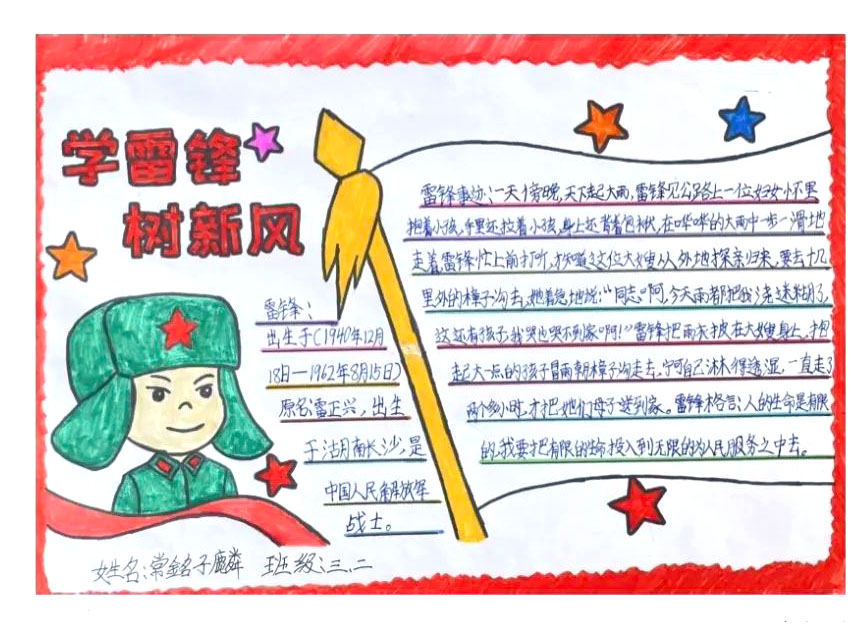 学雷锋
树新风
雷锋:
出生于(1940年12月
18日—1962年8月15日)
原名雷正兴,出生
于湖南长沙,是
中国人民解放军
战士。
雷锋事迹:一天傍晚,天下起大雨,雷锋见公路上一位妇女怀里
抱着小孩,手里还拉着小孩,身上还背着包袱,在哗哗的大雨中一步一滑地
走着,雷锋忙上前打听,才知道这位大嫂从外地探亲归来,要去十几
里外的樟子沟去,她着急地说:“同志啊,今天雨都把我浇迷糊了,
这还有孩子,我哭也哭不到家啊!”雷锋把雨衣披在大嫂身上,抱
起大一点的孩子冒雨朝樟子沟走去,宁可自己淋得透湿,一直走了
两个多小时,才把她们母子送到家。雷锋格言:人的生命是有限
的,我要把有限的生命投入到无限的为人民服务之中去。
姓名:常銘子麟 班级:三、二